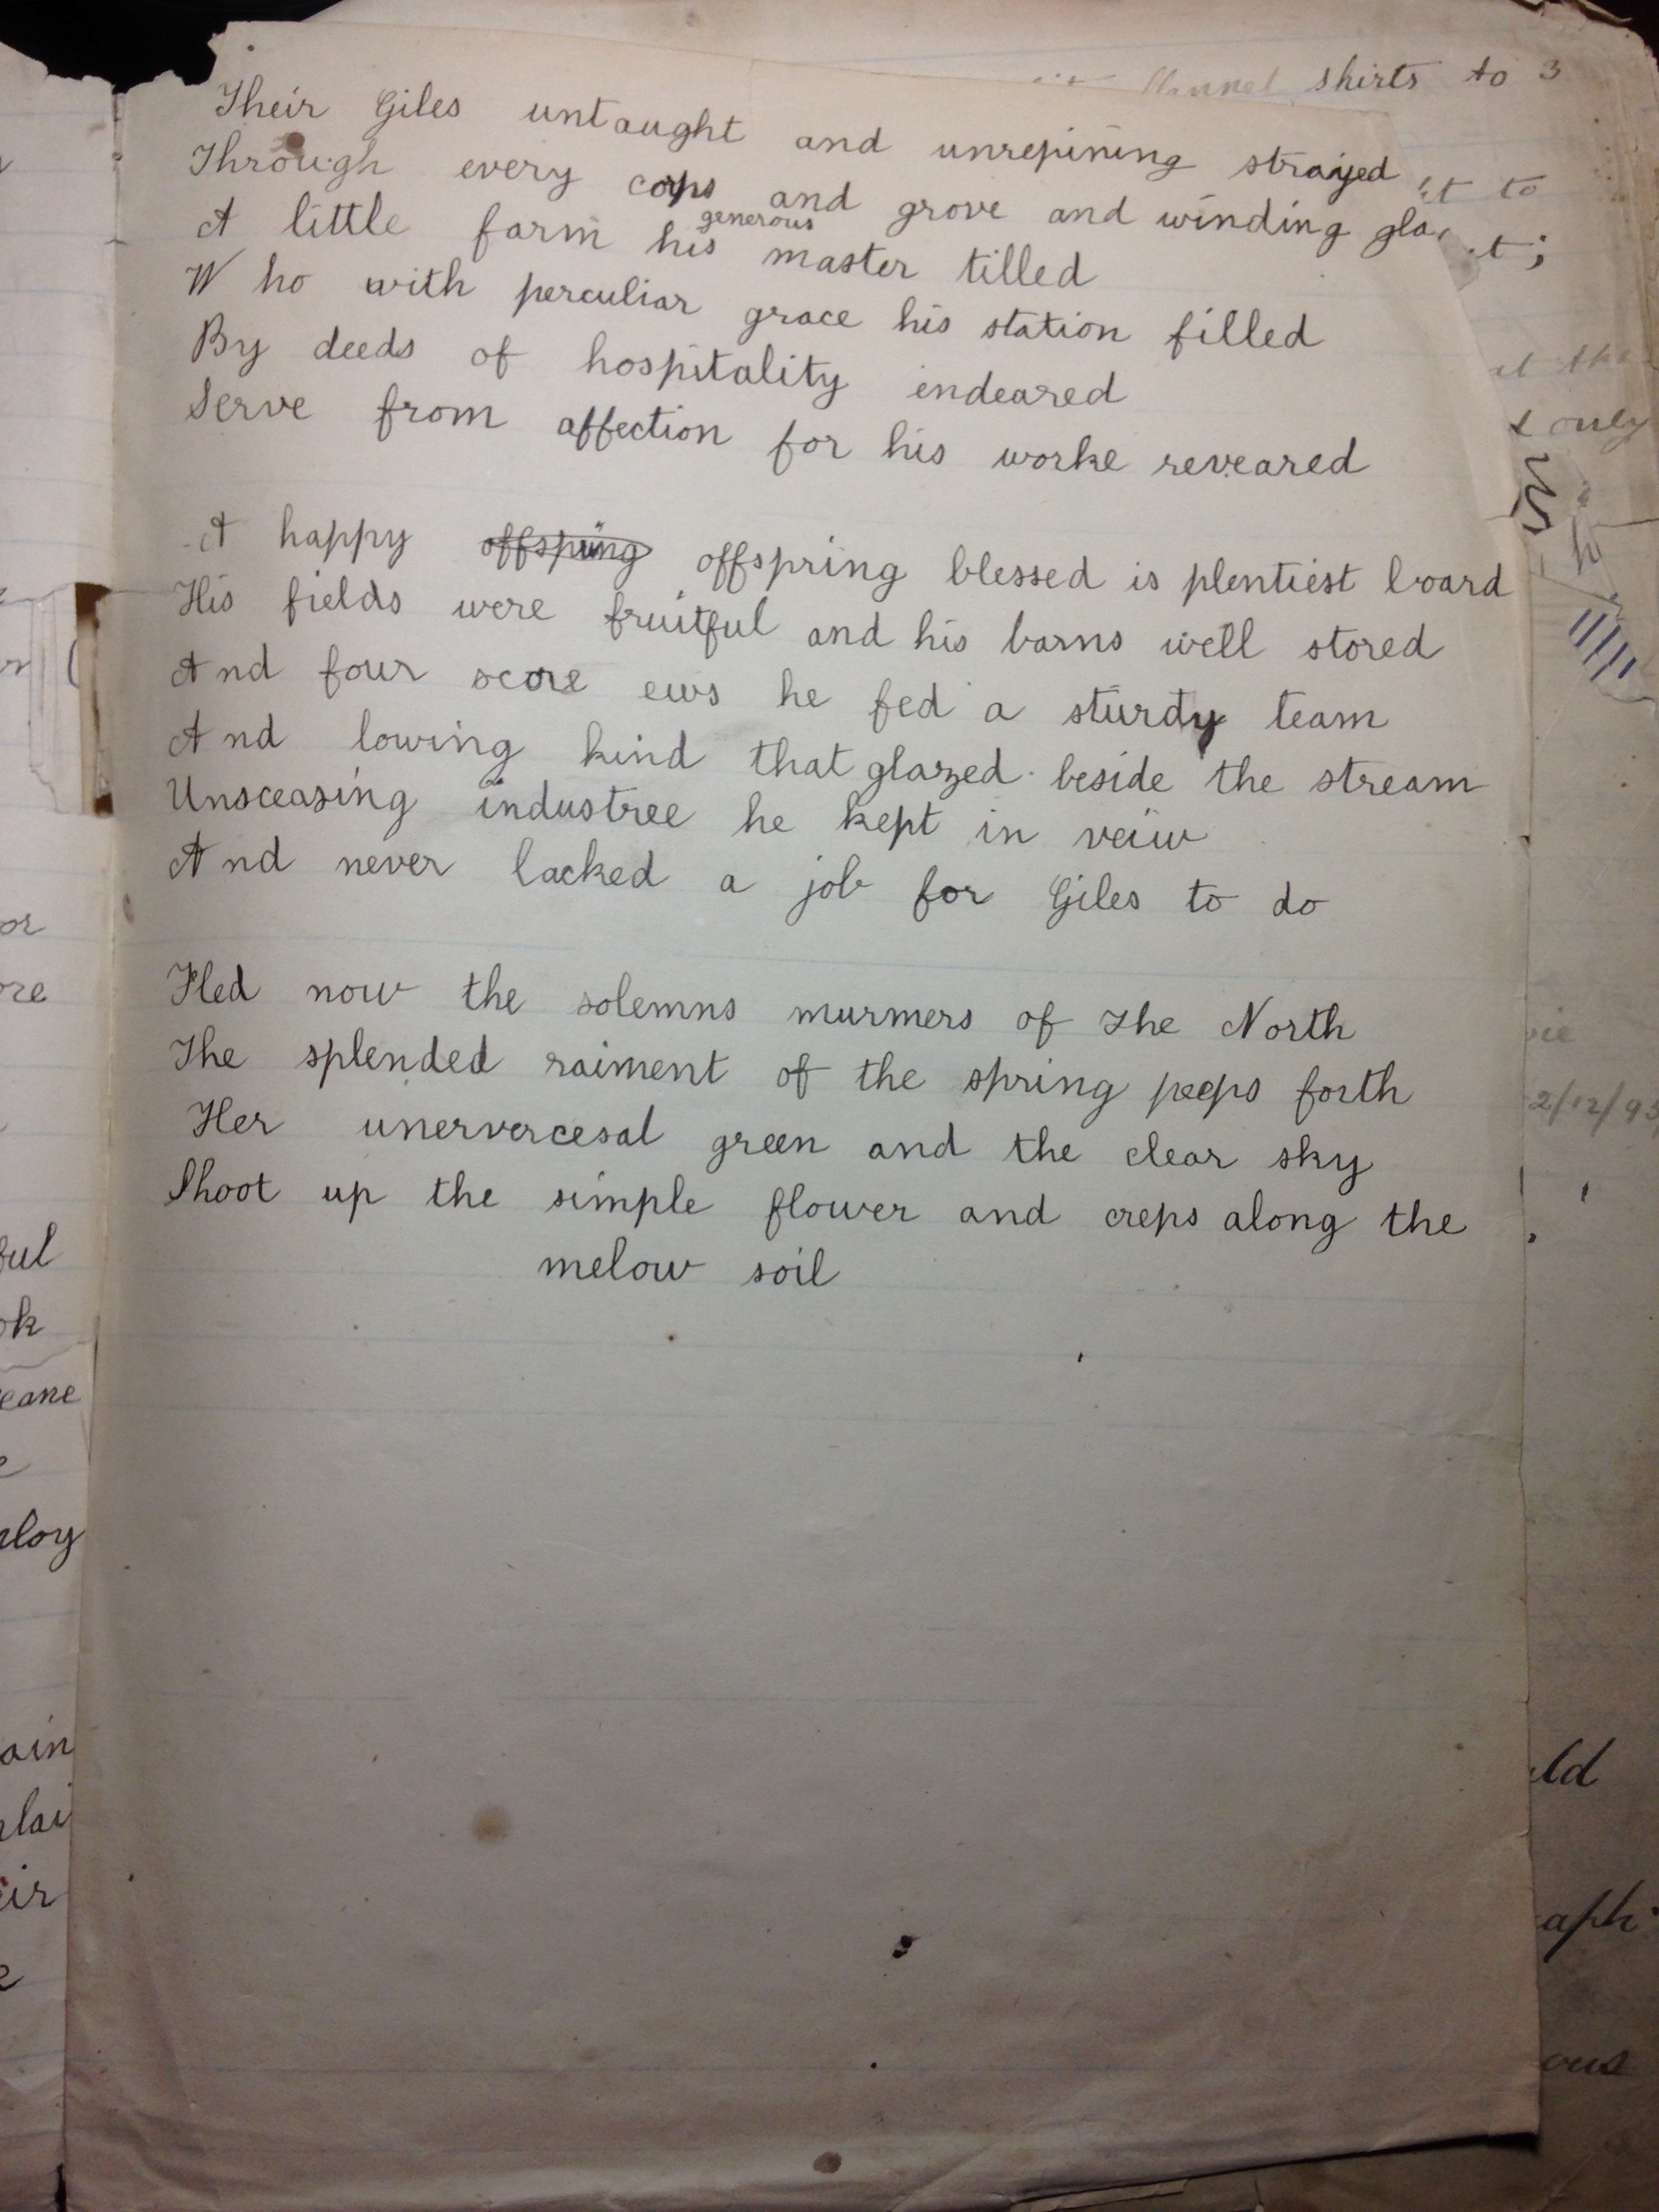 shirts to 3
Their Giles untaught and unrepining strayed
Through every cops and grove and winding gla
A little farm his generous master tilled
Who with perculiar grace his station filled
By deeds of hospitality endeared
Serve from affection for his worke reveared
A happy offspring offspring blessed is plentiest board
His fields were fruitful and his barns well stored
And four score ews he fed a sturdy team
And lowing kind that glazed beside the stream
Unsceasing industree he kept in veiw
And never lacked a job for Giles to do
Fled now the solemns murmers of the North
The splended raiment of the spring peeps forth
Her unervercesal green and the clear sky
Shoot up the simple flower and creps along the
melow soil